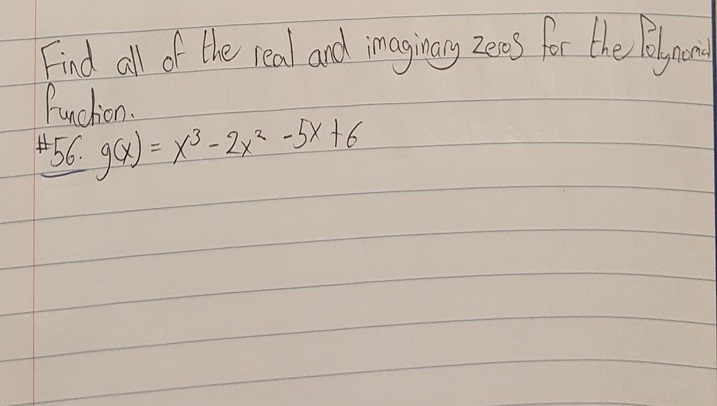 Find all of the real and imaginary zeros for the Polynomial
Function.
#56. g(x) = x³ - 2x² - 5x + 6